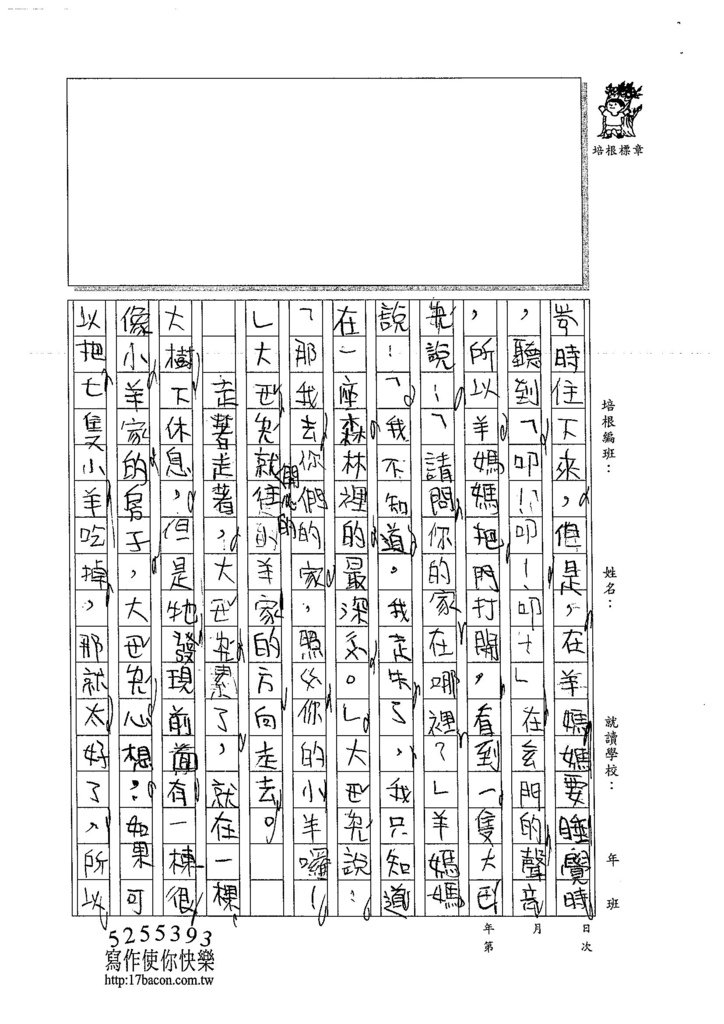 培根標章
培根編班：
姓名：
就讀學校：
年 班
日 月 年
次 第
時住下來，但是，在羊媽媽要睡覺時
，聽到「叩！叩！叩！」在門的聲音
，所以羊媽媽把門打開，看到一隻大巴
兔說：「請問你的家在哪裡？」羊媽媽
說：「我不知道，我走失了，我只知道
在一座森林裡的最深系。」大巴兔說：
「那我去你們的家，照你的小羊囉！
」大巴兔就開心的往羊家的方向走去。
走著走著，大巴兔累了，就在一棵
大樹下休息，但是牠發現前面有一棟很
像小羊家的房子，大巴兔心想：如果可
以把七隻小羊吃掉，那就太好了，所以
5255393
寫作使你快樂
http:17bacon.com.tw